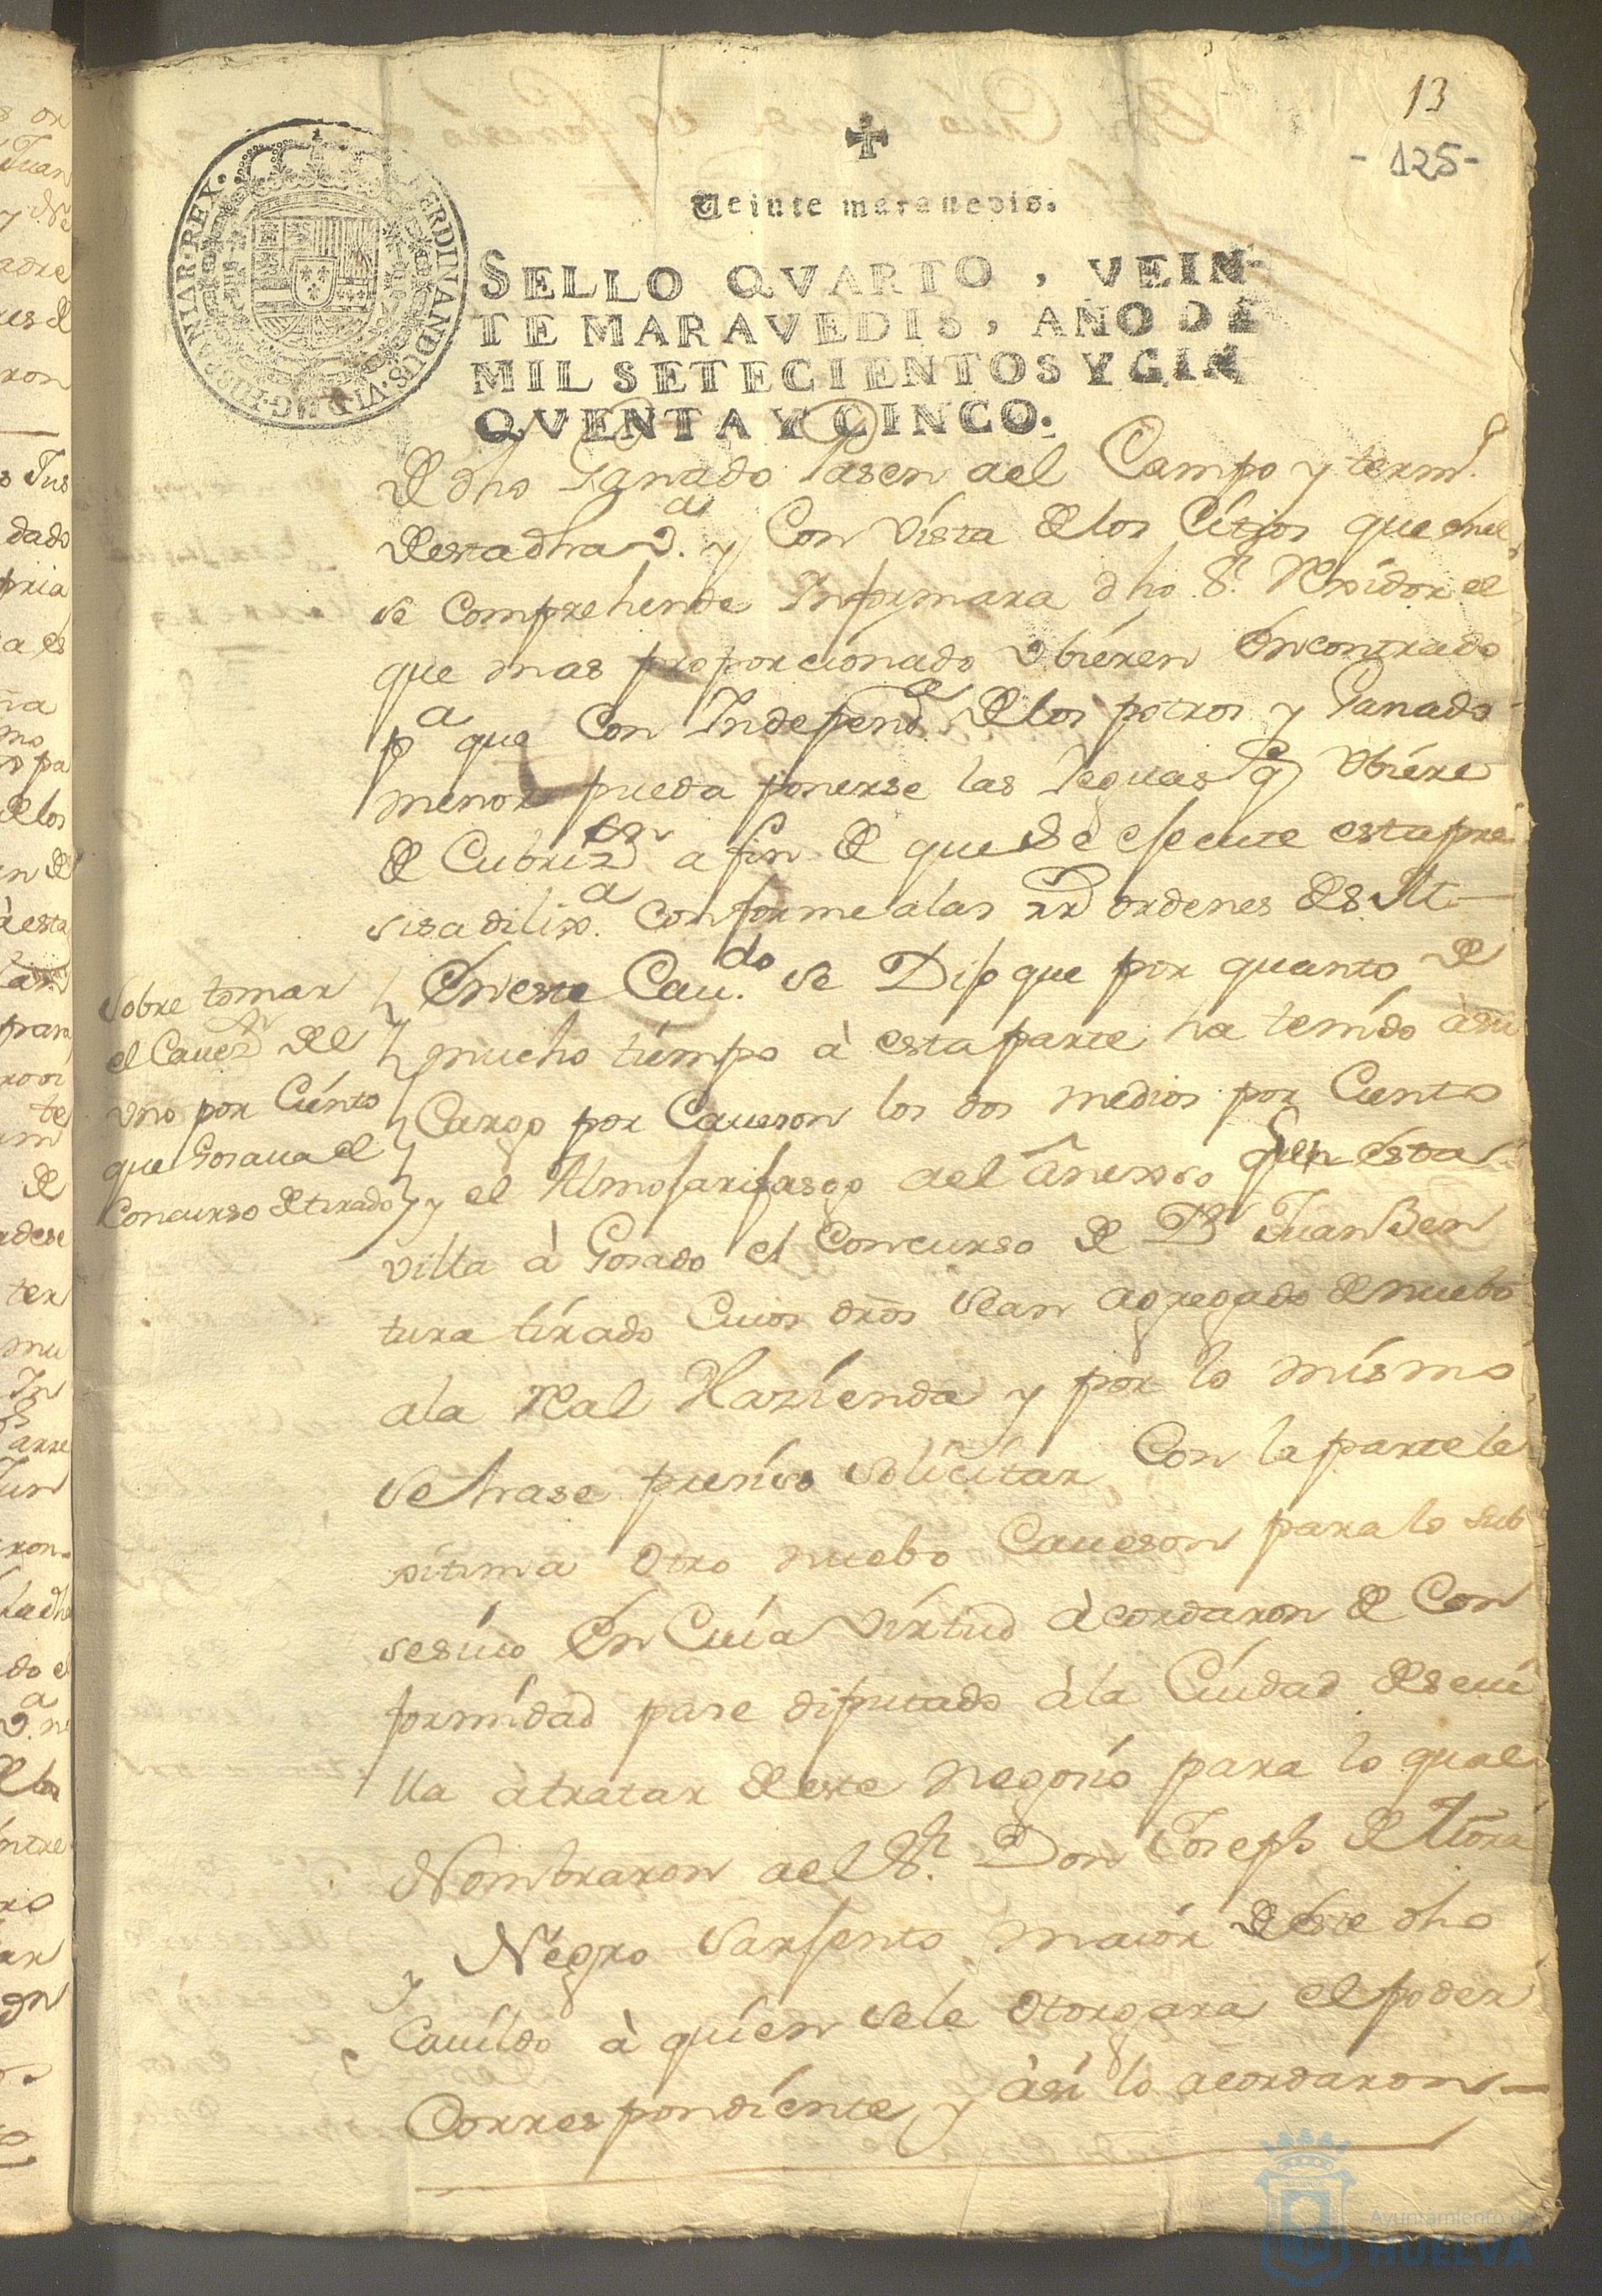 13
-125-
Veinte maravedis.
SELLO QVARTO, VEIN-
TE MARAVEDIS, AÑO DE
MIL SETECIENTOS Y CIN
QVENTA Y CINCO.
FERDINANDUS·VI·D·G·HISPANIAR·REX·
de dho Ganado Pasen ael Campo y termº.
de esta dha Vª. y Con Vista de los Citios que enel
se Comprehende Informara dho Sr. Rexidor el
que mas proporcionado Vbieren Encontrado
pª que Con Independª de los potros y Ganado
menor pueda ponerse las Yeguas q Vbiere
de Cubrir a fin de que Se efecute esta pre
sisa dilixª. Conforme a las rr ordenes de S. M.
En este Caudo. se Dijo que por quanto de
mucho tiempo à esta parte ha tenido àsu
Cargo por Caueson los dos medios por Ciento
y el Almojarifasgo del Anexso que en esta
villa à Gosado el Concurso de Dn Juan Ben
tura tirado Cuios dros sean agregado de nuebo
ala Real Hazienda y por lo mismo
se hase presiso solicitar Con la parte le
xitima Otro nuebo Caueson para lo sub
sesiuo En Cuia Virtud àcordaron de Con
formidad pase diputado àla Ciudad de Seui
lla àtratar de este negosio para lo qual
Nombraron ael Sr. Don Joseph de Mora
y Negro Sarjento maior de este dho
Cauildo à quien se le Otorgara el poder
Correspondiente y àsi lo acordaron
Sobre tomar
el Caueson del
vno por Ciento
que Gosaua el
Concurso de tirado
Ayuntamiento de
HUELVA